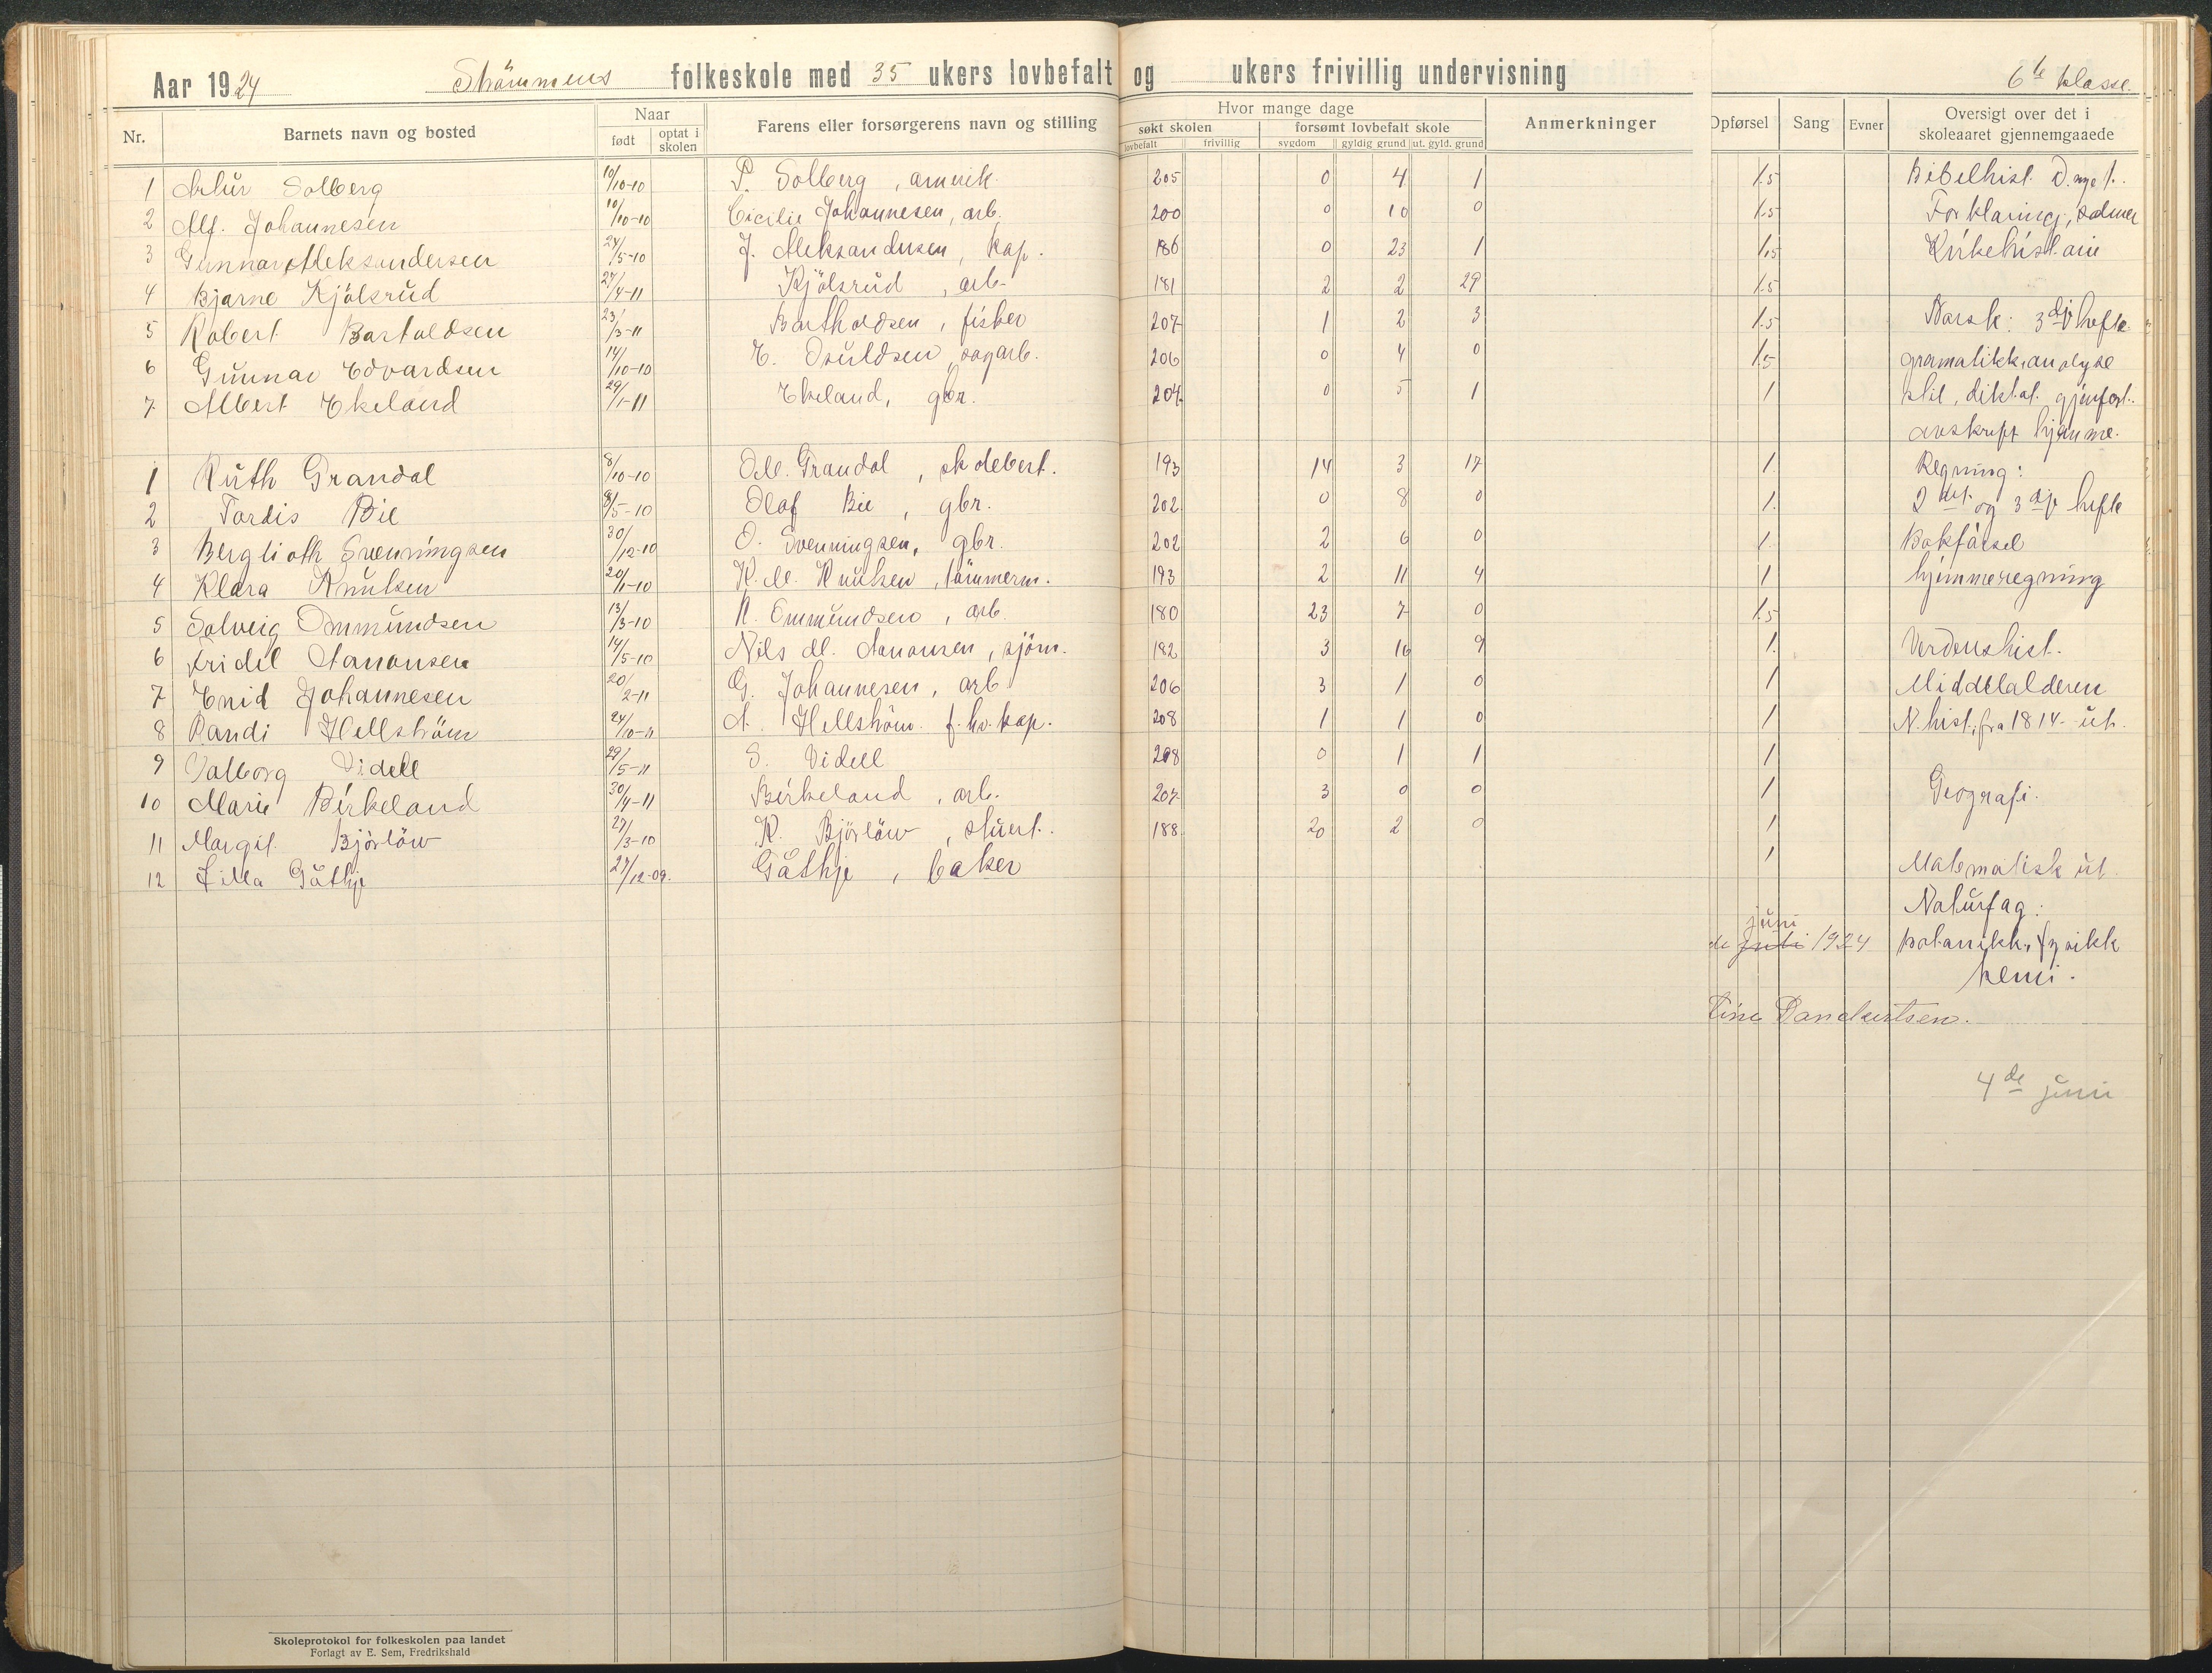 Aar 1924 Strömmens folkeskole med 35 ukers lovbefalt og ukers frivillig undervisning 6te klasse.
Nr. Barnets navn og bosted Naar født optat i skolen Farens eller forsørgerens navn og stilling Hvor mange dage søkt skolen lovbefalt frivillig forsømt lovbefalt skole sygdom gyldig grund ut. gyld. grund Anmerkninger Opførsel Sang Evner Oversigt over det i skoleaaret gjennemgaaede
1 Artur Solberg 10/10-10 P. Solberg, 205 0 4 1 1.5 Bibelhist. D. nye t.
2 Alf. Johannesen 10/10-10 Cicilie Johannesen, arb. 200 0 10 0 1.5 Forklaring, salmer
3 Gunnar Aleksandersen 24/5-10 J. Aleksandersen, kap. 186 0 23 1 1.5 Kirkehistorie
4 Bjarne Kjölsrud 27/4-11 Kjölsrud, arb. 181 2 2 29 1.5
5 Robert Bartoldsen 23/3-11 Bartholdsen, fisker 207 1 2 3 1.5 Norsk: 3dje hefte
6 Gunnar Edvardsen 14/10-10 E. Osuldsen, sagarb. 206 0 4 0 1.5 gramatikk, analyse
7 Albert Ekeland 29/1-11 Ekeland, gbr. 204 0 5 1 1 stil, diktat. gjenfort.
avskrift hjemme.
1 Ruth Grandal 8/10-10 Ole. Grandal, 193 14 3 17 1 Regning:
2 Tordis Bie 9/5-10 Olaf Bie, gbr. 202 0 8 0 1. 2det og 3dje hefte
3 Berglioth Svenningsen 30/12-10 O. Svenningsen, gbr. 202 2 6 0 1. Bokførsel
4 Klara Knutsen 20/1-10 K. M. Knutsen, tömmerm. 193 2 11 4 1 hjemmeregning
5 Solveig Ommundsen 13/3-10 N. Ommundsen, arb. 180 23 7 0 1.5
6 Aanonsen 14/5-10 Nils M. Aanonsen, sjöm. 182 3 16 9 1. Verdenshist.
7 Enid Johannesen 20/2-11 G. Johannesen, arb. 206 3 1 0 1 Middelalderen
8 Randi Hellström 24/10-11 A. Hellström. f. hv. kap. 208 1 1 0 1 N. hist. fra 1814 - ut.
9 Valborg Videll 29/5-11 S. Videll 208 0 1 1 1
10 Marie Birkeland 30/4-11 Birkeland, arb. 207 3 0 0 1 Geografi.
11 Margit Björlöw 27/3-10 K. Björlöw, stuert. 188 20 2 0 1
12 Lilla Gåthje 27/12-09. Gåthje, baker 1 Matematisk ut.
Naturfag:
juni
de Juli 1924 botanikk, fysikk
kemi.
tine Danckertsen.
4de juni
Skoleprotokol for folkeskolen paa landet
Forlagt av E. Sem, Fredrikshald